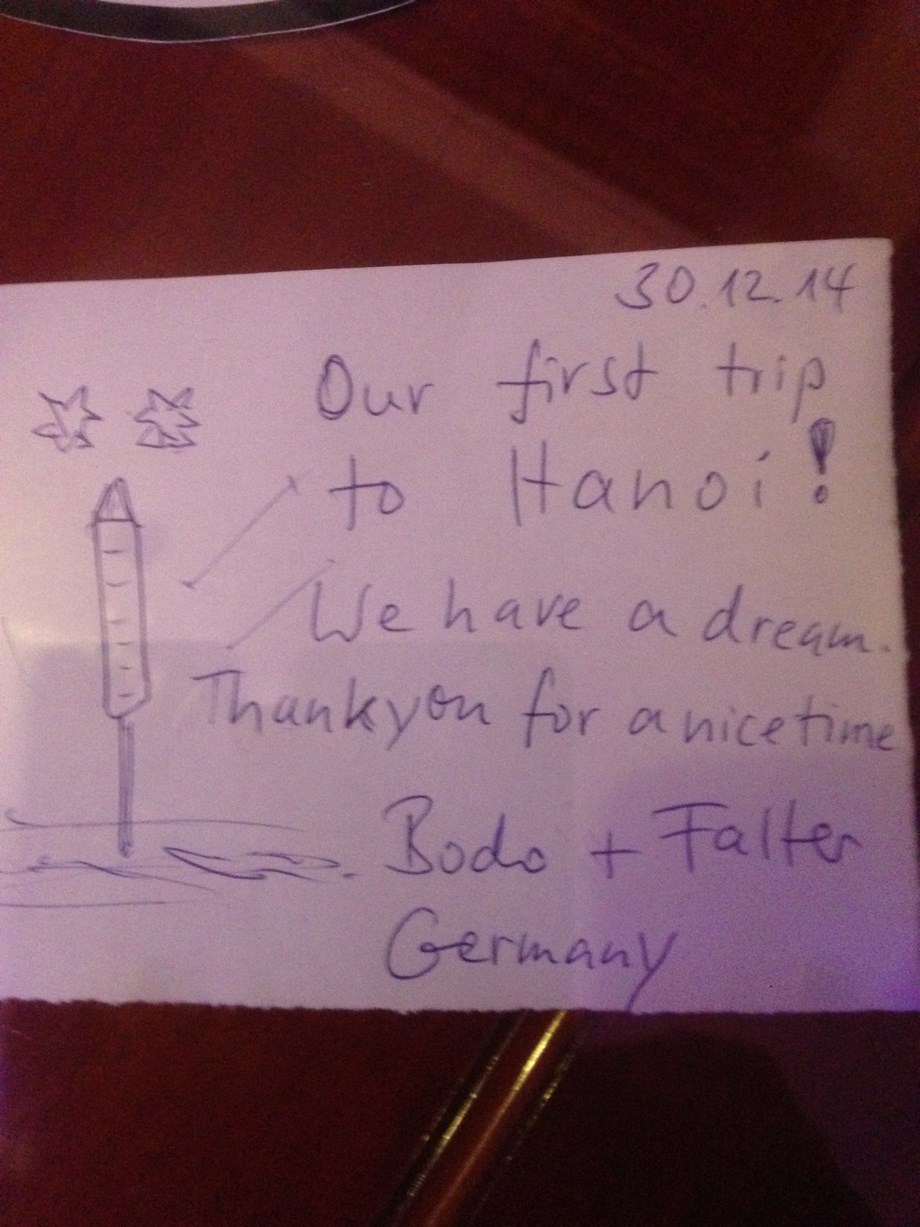 30.12.14
Our first trip
to Hanoi!
We have a dream.
Thank you for a nice time
Bodo + Falter
Germany